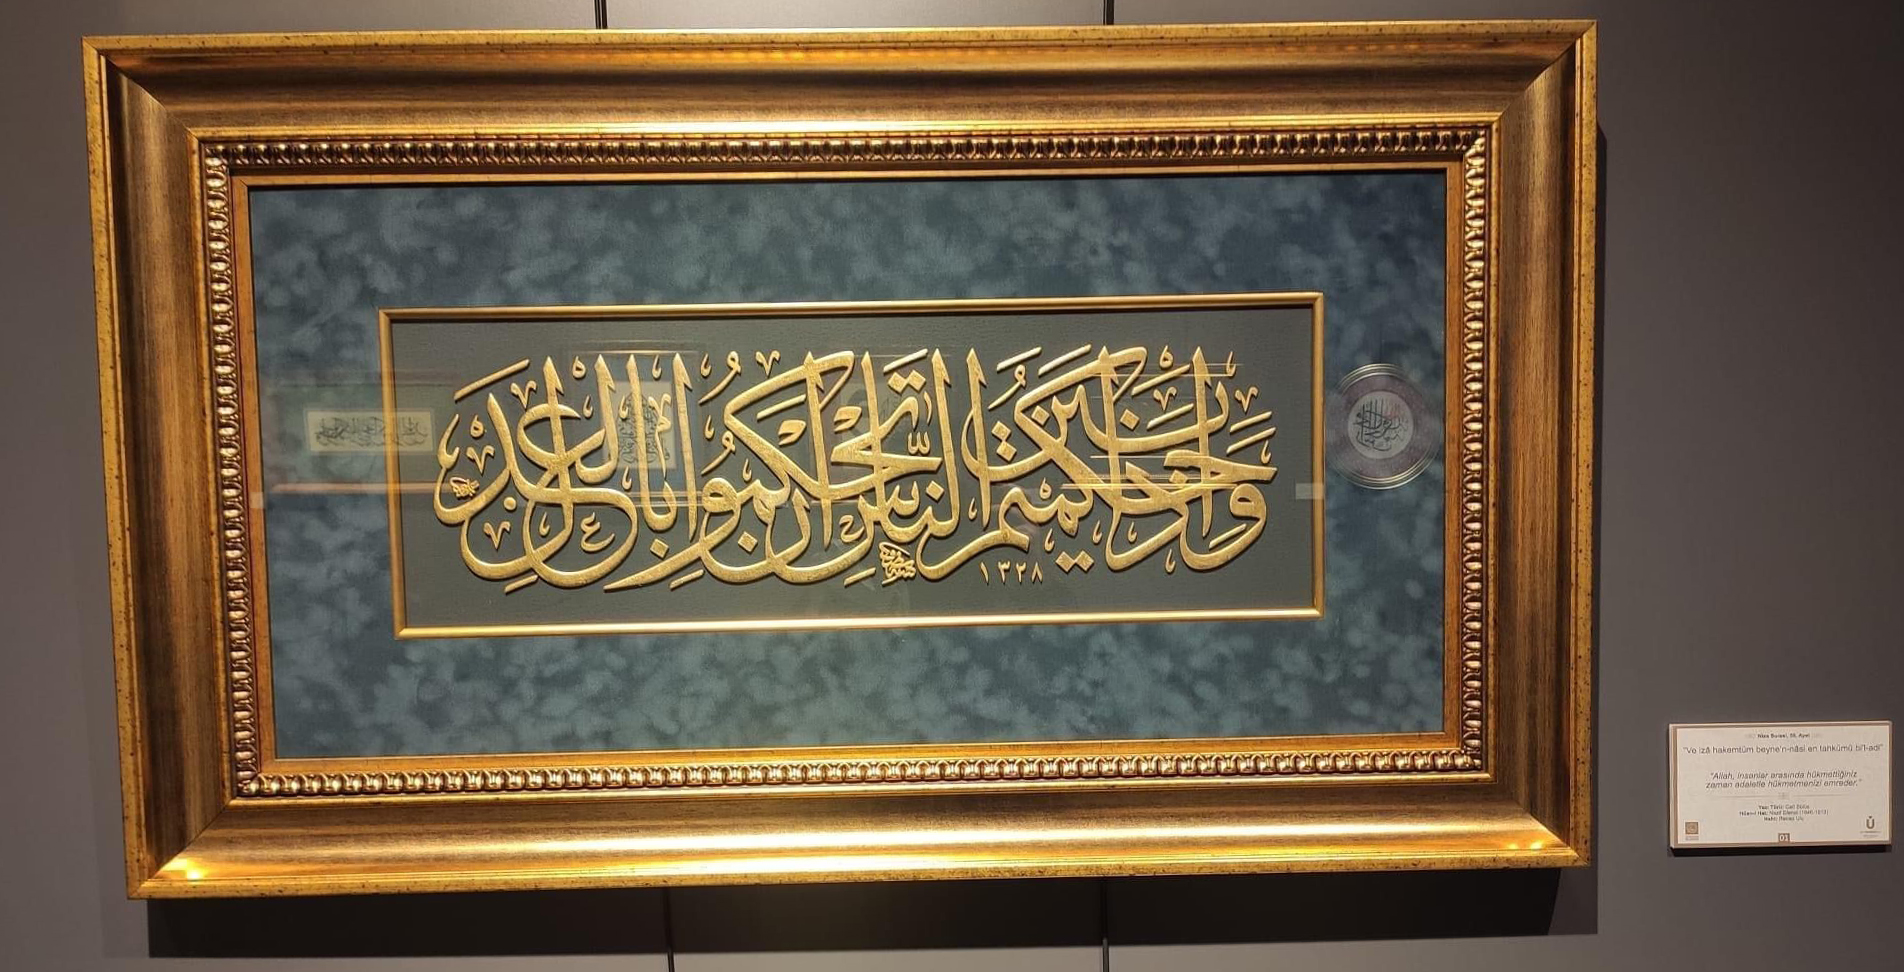 وإذا حكمتم بين الناس أن تحكموا بالعدل
١٣٢٨
Nisa Suresi, 58. Ayet
"Ve izâ hakemtüm beyne'n-nâsi en tahkümû bi'l-adl"
"Allah, insanlar arasında hükmettiğiniz
zaman adaletle hükmetmenizi emreder."
Yazı Türü: Celî Sülüs
01
Ü